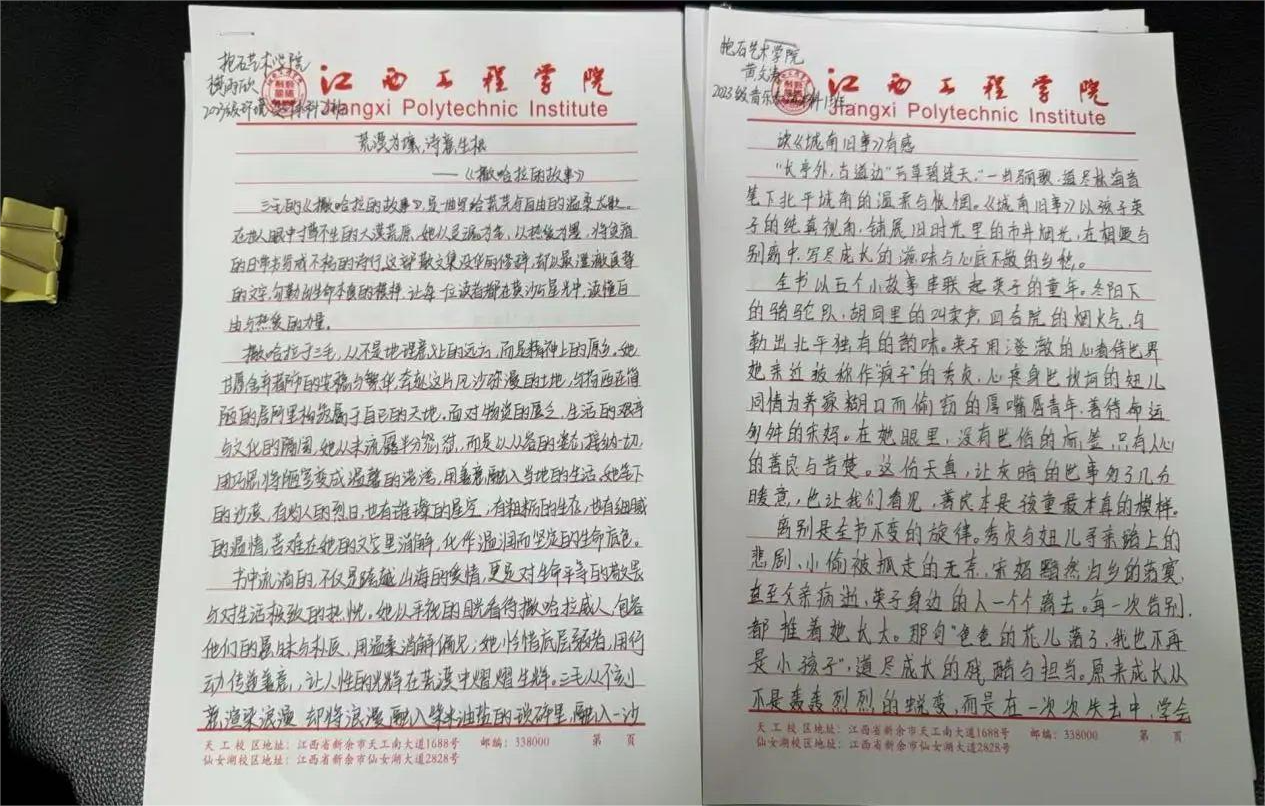 抱石艺术学院
江西工程学院
Jiangxi Polytechnic Institute
荒漠为壤,诗意生根
——《撒哈拉的故事》
三毛的《撒哈拉的故事》,是一曲写给荒芜与自由的温柔长歌。
在世人眼中寸草不生的大漠荒原,她以足迹为笔,以热爱为墨,将贫瘠
的日常书写成不朽的诗行。这部散文集没华丽修辞,却以最澄澈真挚
的文字,勾勒出生命本真的模样,让每一位读者都在黄沙与星光中,读懂自
由与热爱的力量。
撒哈拉于三毛,从不是地理意义上的远方,而是精神上的原乡。她
甘愿舍弃都市的安稳与繁华,奔赴这片风沙弥漫的土地,与荷西在简
陋的居所里构筑属于自己的天地。面对物资的匮乏、生活的艰辛
与文化的隔阂,她从未流露半分怨怼,而是以从容的姿态,接纳一切,
用巧思将陋室变成温馨的港湾,用善意融入当地的生活。她笔下
的沙漠,有灼人的烈日,也有璀璨的星空,有粗粝的生存,也有细腻
的温情,苦难在她的文字里消解,化作温润而坚定的生命底色。
书中流淌的,不仅是跨越山海的爱情,更是对生命平等的敬畏
与对生活极致的热忱。她以平视的目光看待撒哈拉威人,包容
他们的愚昧与朴质,用温柔消解偏见;她怜惜底层弱者,用行
动传递善意,让人性的光辉在荒漠中熠熠生辉。三毛从不刻
意渲染浪漫,却将浪漫融入柴米油盐的琐碎里,融入一沙
天工校区地址:江西省新余市天工南大道1688号 邮编:338000 第 页
仙女湖校区地址:江西省新余市仙女湖大道2828号
抱石艺术学院
江西工程学院
Jiangxi Polytechnic Institute
读《城南旧事》有感
"长亭外,古道边,芳草碧连天。"一曲骊歌,道尽林海音
笔下北平城南的温柔与怅惘。《城南旧事》以孩子英
子的纯真视角,铺展旧时光里的市井烟火,在相遇与
别离中,写尽成长的滋味与心底不散的乡愁。
全书以五个小故事串联起英子的童年。冬阳下
的骆驼队,胡同里的叫卖声,四合院的烟火气,勾
勒出北平独有的韵味。英子用澄澈的心看待世界
她亲近被称作"疯子"的秀贞,心疼身世坎坷的妞儿
同情为养家糊口而偷窃的厚嘴唇青年,善待命运
多舛的宋妈。在她眼里,没有世俗的标签,只有人心
的善良与苦楚。这份天真,让灰暗的世事多了几分
暖意,也让我们看见,善良本是孩童最本真的模样。
离别是全书不变的旋律。秀贞与妞儿寻亲路上的
悲剧、小偷被抓走的无奈,宋妈黯然归乡的落寞,
直至父亲病逝,英子身边的人一个个离去。每一次告别,
都推着她长大。那句"爸爸的花儿落了,我也不再
是小孩子",道尽成长的残酷与担当。原来成长从
不是轰轰烈烈的蜕变,而是在一次次失去中,学会
天工校区地址:江西省新余市天工南大道1688号 邮编:338000 第 页
仙女湖校区地址:江西省新余市仙女湖大道2828号